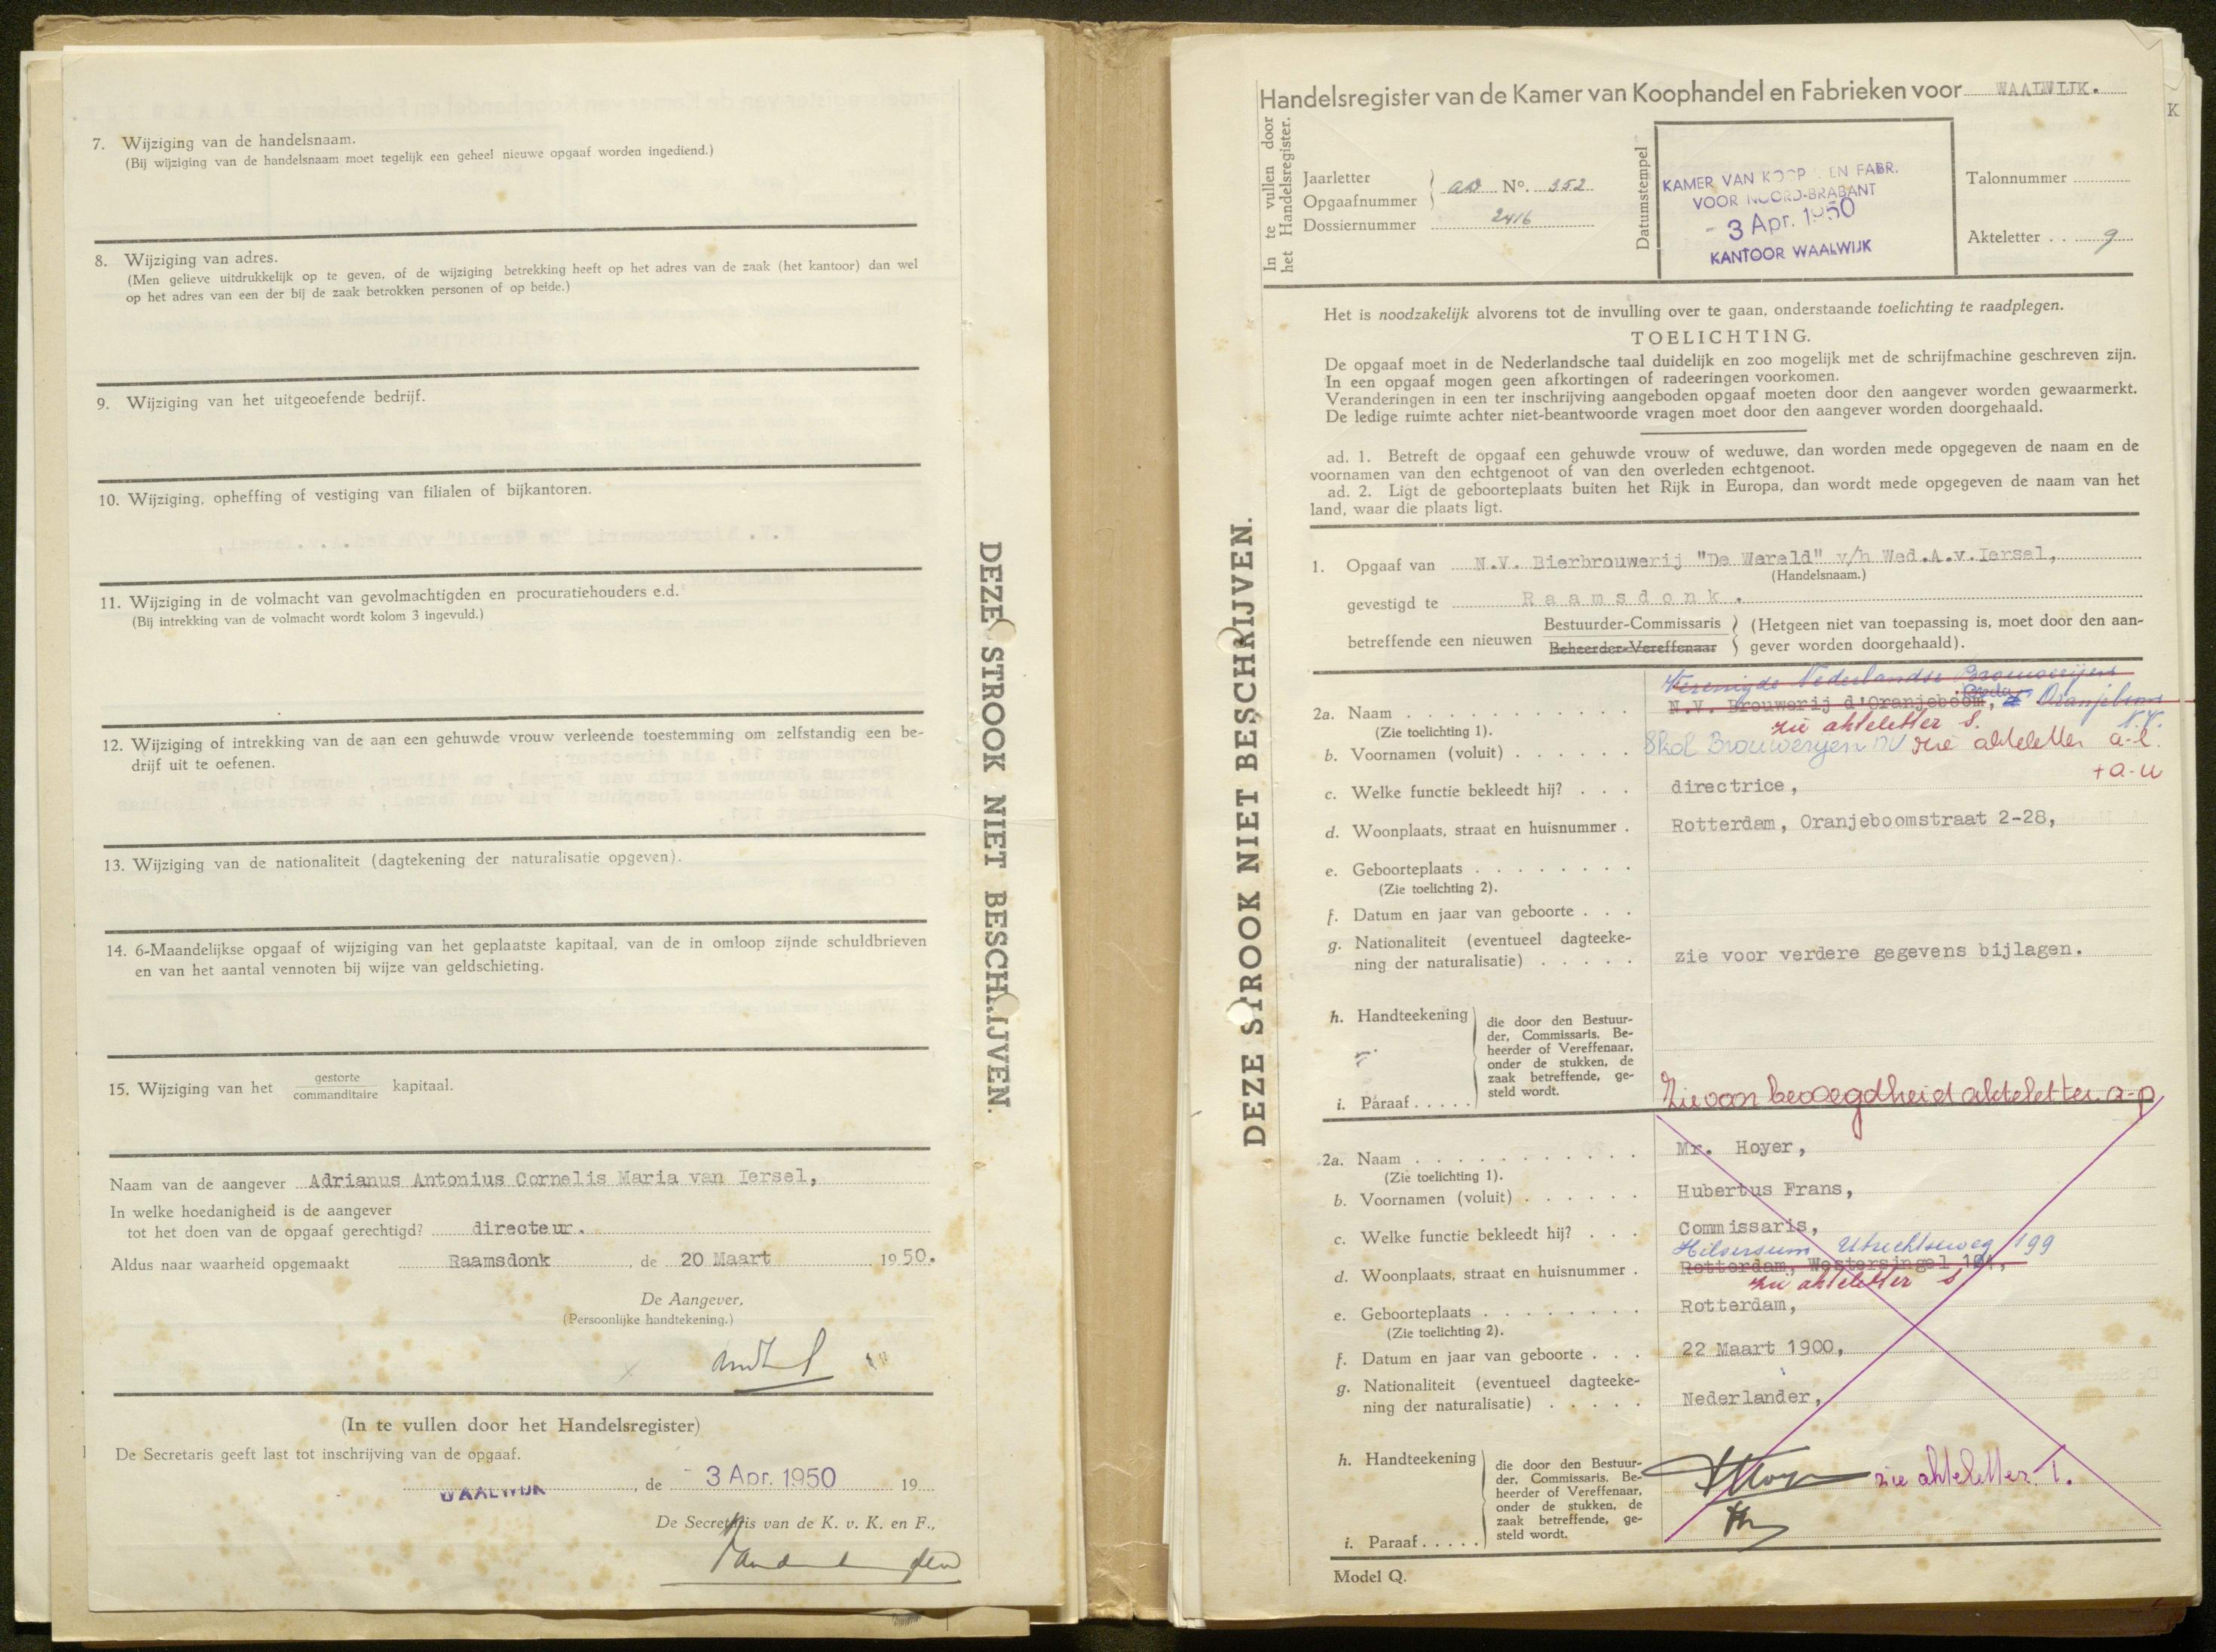 7. Wijziging van de handelsnaam.
(Bij wijziging van de handelsnaam moet tegelijk een geheel nieuwe opgaaf worden ingediend.)
8. Wijziging van adres.
(Men gelieve uitdrukkelijk op te geven, of de wijziging betrekking heeft op het adres van de zaak (het kantoor) dan wel
op het adres van een der bij de zaak betrokken personen of op beide.)
9. Wijziging van het uitgeoefende bedrijf.
10. Wijziging, opheffing of vestiging van filialen of bijkantoren.
11. Wijziging in de volmacht van gevolmachtigden en procuratiehouders e.d.
(Bij intrekking van de volmacht wordt kolom 3 ingevuld.)
12. Wijziging of intrekking van de aan een gehuwde vrouw verleende toestemming om zelfstandig een be-
drijf uit te oefenen.
13. Wijziging van de nationaliteit (dagtekening der naturalisatie opgeven).
14. 6-Maandelijkse opgaaf of wijziging van het geplaatste kapitaal, van de in omloop zijnde schuldbrieven
en van het aantal vennoten bij wijze van geldschieting.
15. Wijziging van het gestorte commanditaire kapitaal.
Naam van de aangever Adrianus Antonius Cornelis Maria van Iersel,
In welke hoedanigheid is de aangever
tot het doen van de opgaaf gerechtigd? directeur.
Aldus naar waarheid opgemaakt Raamsdonk, de 20 Maart 1950.
De Aangever,
(Persoonlijke handtekening.)
(In te vullen door het Handelsregister)
De Secretaris geeft last tot inschrijving van de opgaaf.
WAALWIJK, de - 3 Apr. 1950 19
De Secretaris van de K. v. K. en F.,
DEZE STROOK NIET BESCHRIJVEN.
DEZE STROOK NIET BESCHRIJVEN.
Handelsregister van de Kamer van Koophandel en Fabrieken voor WAALWIJK.
K
In te vullen door
het Handelsregister.
Jaarletter
Opgaafnummer
aD No. 352
Dossiernummer 2416
Datumstempel
KAMER VAN KOOP EN FABR.
VOOR NOORD-BRABANT
- 3 Apr. 1950
KANTOOR WAALWIJK
Talonnummer
Akteletter . . 9
Het is noodzakelijk alvorens tot de invulling over te gaan, onderstaande toelichting te raadplegen.
TOELICHTING.
De opgaaf moet in de Nederlandsche taal duidelijk en zoo mogelijk met de schrijfmachine geschreven zijn.
In een opgaaf mogen geen afkortingen of radeeringen voorkomen.
Veranderingen in een ter inschrijving aangeboden opgaaf moeten door den aangever worden gewaarmerkt.
De ledige ruimte achter niet-beantwoorde vragen moet door den aangever worden doorgehaald.
ad. 1. Betreft de opgaaf een gehuwde vrouw of weduwe, dan worden mede opgegeven de naam en de
voornamen van den echtgenoot of van den overleden echtgenoot.
ad. 2. Ligt de geboorteplaats buiten het Rijk in Europa, dan wordt mede opgegeven de naam van het
land, waar die plaats ligt.
1. Opgaaf van N.V. Bierbrouwerij "De Wereld" v/h Wed.A.v.Iersel,
(Handelsnaam.)
gevestigd te Raamsdonk.
betreffende een nieuwen Bestuurder-Commissaris Beheerder-Vereffenaar (Hetgeen niet van toepassing is, moet door den aan-
gever worden doorgehaald).
Verenigde Nederlandse Brouwerijen
Breda
2a. Naam N.V. Brouwerij d'Oranjeboom, Oranjeboom N.V.
(Zie toelichting 1). zie akteletter s.
b. Voornamen (voluit) Skol Brouwerijen NV zie akteletter a-l.
+ a-u
c. Welke functie bekleedt hij? directrice,
d. Woonplaats, straat en huisnummer Rotterdam, Oranjeboomstraat 2-28,
e. Geboorteplaats
(Zie toelichting 2).
f. Datum en jaar van geboorte
g. Nationaliteit (eventueel dagteeke-
ning der naturalisatie) zie voor verdere gegevens bijlagen.
h. Handteekening
i. Paraaf
die door den Bestuur-
der, Commissaris, Be-
heerder of Vereffenaar,
onder de stukken, de
zaak betreffende, ge-
steld wordt.
Zie voor bevoegdheid akteletter a-p
2a. Naam Mr. Hoyer,
(Zie toelichting 1).
b. Voornamen (voluit) Hubertus Frans,
c. Welke functie bekleedt hij? Commissaris,
Hilversum Utrechtseweg 199
d. Woonplaats, straat en huisnummer Rotterdam, Westersingel 101,
zie akteletter s
e. Geboorteplaats Rotterdam,
(Zie toelichting 2).
f. Datum en jaar van geboorte 22 Maart 1900,
g. Nationaliteit (eventueel dagteeke-
ning der naturalisatie) Nederlander,
h. Handteekening
i. Paraaf
die door den Bestuur-
der, Commissaris, Be-
heerder of Vereffenaar,
onder de stukken, de
zaak betreffende, ge-
steld wordt.
zie akteletter T.
Model Q.